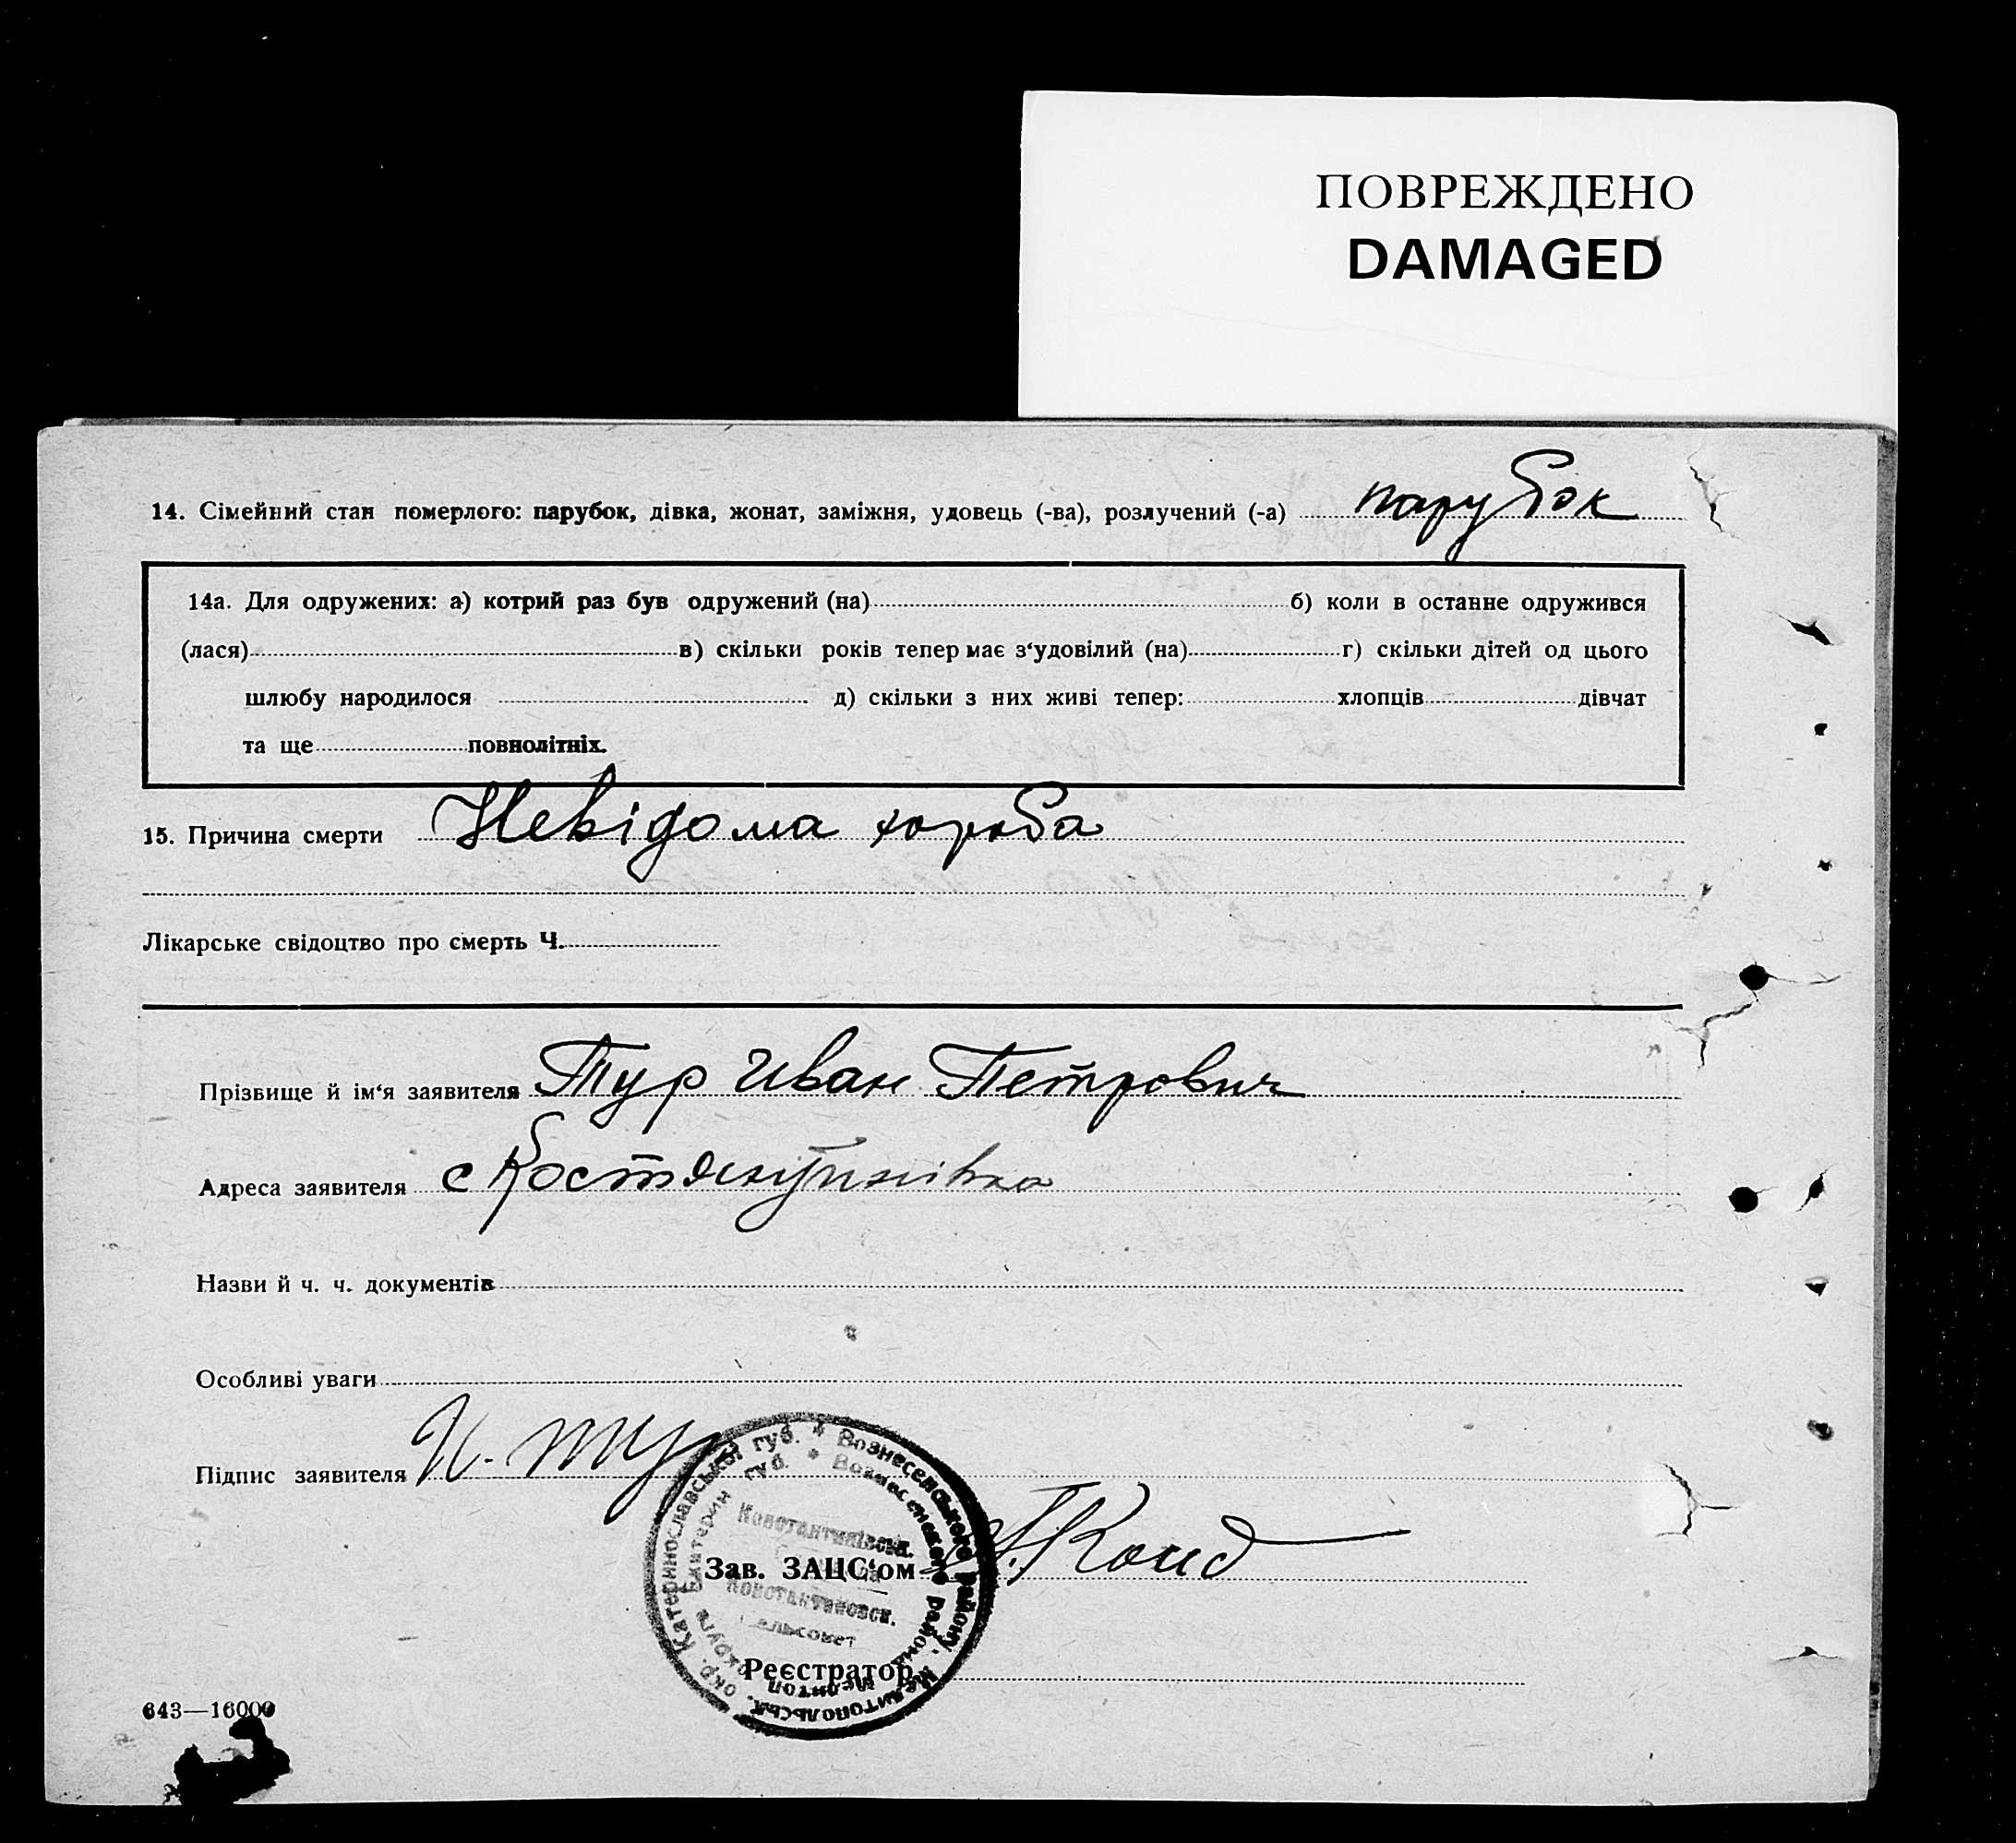 ПОВРЕЖДЕНО
DAMAGED
14. Сімейний стан померлого: парубок, дівка, жонат, заміжня, удовець (-ва), розлучений (-а) парубок
14а. Для одружених: а) котрий раз був одружений (на) б) коли в останне одружився
(лася) в) скільки років тепер має з‘удовілий (на) г) скільки дітей од цього
шлюбу народилося д) скільки з них живі тепер: хлопців дівчат
та ще повнолітніх.
15. Причина смерти Невідома хороба
Лікарське свідоцтво про смерть Ч.
Прізвище й ім‘я заявителя Тур Иван Петрович
Адреса заявителя с Костянтинівка
Назви й ч. ч. документів
Особливі уваги
Підпис заявителя И. Тур
Катеринославської губ. * Вознесенського району, Мелитопольськ. окр.
Екатерин губ. * Вознесенского района Мелитоп округа
Константинівськ.
Константиновск.
ельсовет
Зав. ЗАЦС‘ом
Реєстратор
643—16000